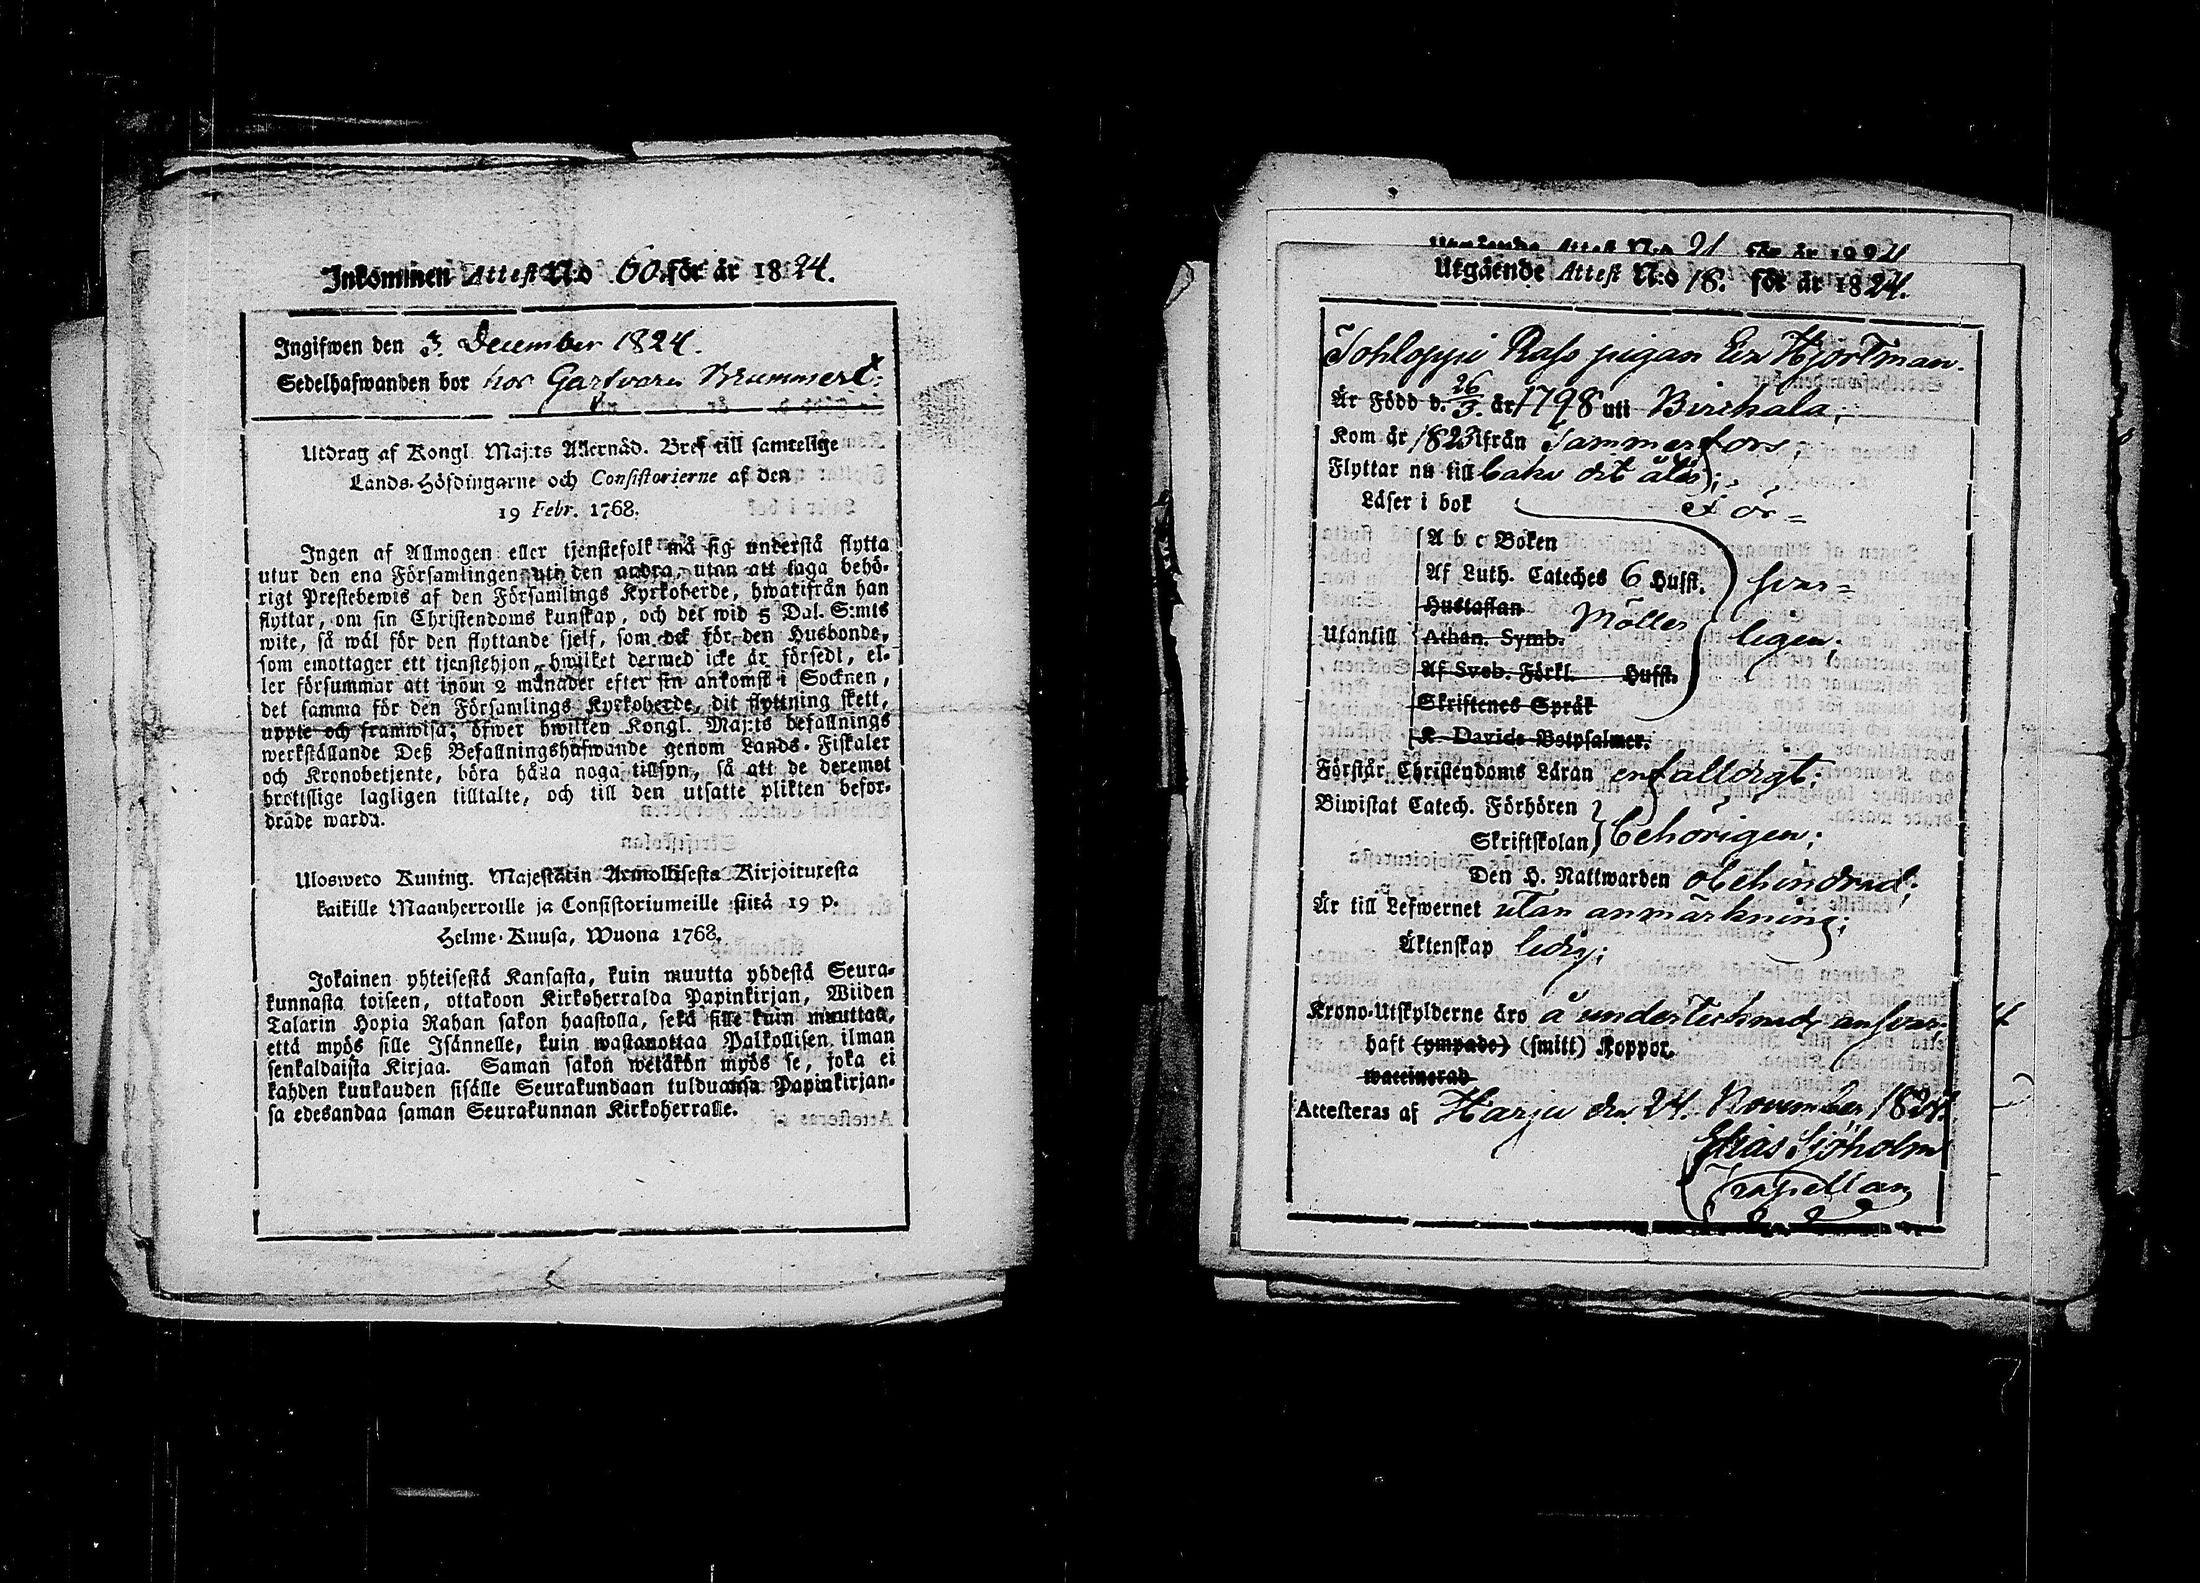 Inkommen Attest N:o 60. för år 1824.
Ingifwen den 3. December 1824.
Sedelhafwanden bor hos Garfvaren Brummert.
Utdrag af Kongl. Maj:ts Allernåd. Bref till samtelige
Lands-Höfdingarne och Consistorierne af den
19 Febr. 1768.
Ingen af Allmogen eller tjenstefolk må sig understå flytta
utur den ena Församlingen uti den andra, utan att taga behö-
rigt Prestebewis af den Församlings Kyrkoherde, hwarifrån han
flyttar, om sin Christendoms kunskap, och det wid 5 Dal. S:mts
wite, så wäl för den flyttande sjelf, som det för den Husbonde,
som emottager ett tjenstehjon, hwilket dermed icke är försedt, el-
ler försummar att inom 2 månader efter sin ankomst i Socknen,
det samma för den Församlings Kyrkoherde, dit flyttning skett,
uppte och framwisa; öfwer hwilken Kongl. Maj:ts befallnings
werkställande Deß Befallningshafwande genom Lands-Fiskaler
och Kronobetjente, böra hålla noga tillsyn, så att de deremot
brottslige lagligen tilltalte, och till den utsatte plikten befor-
drade warda.
Uloswero Kuning. Majestätin Armollisesta Kirjoituxesta
kaikille Maanherroille ja Consistoriumeille siitä 19 p.
Helme-Kuusa, Wuona 1768.
Jokainen yhteisestä Kansasta, kuin muutta yhdestä Seura-
kunnasta toiseen, ottakoon Kirkoherralda Papinkirjan, Wiiden
Talarin Hopia Rahan sakon haastolla, sekä sille kuin muuttaa,
että myös sille Isännelle, kuin wastanottaa Palkollisen ilman
senkaldaista Kirjaa. Saman sakon wetäkön myös se, joka ei
kahden kuukauden sisälle Seurakundaan tulduansa Papinkirjan-
sa edesandaa saman Seurakunnan Kirkoherralle.
Utgående Attest N:o 21 för år 1824
Utgående Attest N:o 18. för år 1824.
Tohloppi Rass pigan Eva Hjortman.
Är Född d. 26/3. år 1798 uti Birchala;
Kom år 1823 ifrån Tammerfors;
Flyttar nu till baka dit åter;
Läser i bok För-
A b c Boken
Af Luth. Cateches 6 Husst. svar-
Hustaflan Möller
Utantill Athan. Symb. ligen;
Af Sveb. Förkl. Husst.
Skriftenes Språk
K. Davids Botpsalmer.
Förstår Christendoms Läran enfalldigt;
Biwistat Catech. Förhören
Skriftskolan behörigen;
Den H. Nattwarden obehindrad;
Är till Lefwernet utan anmärkning;
Äktenskap ledig;
Krono-Utskylderne äro å undertecknads answar.
haft (ympade) (smitt) Koppor.
waccinerad
Attesteras af Harju den 24. November 1824.
Elias Sjöholm
Capellan